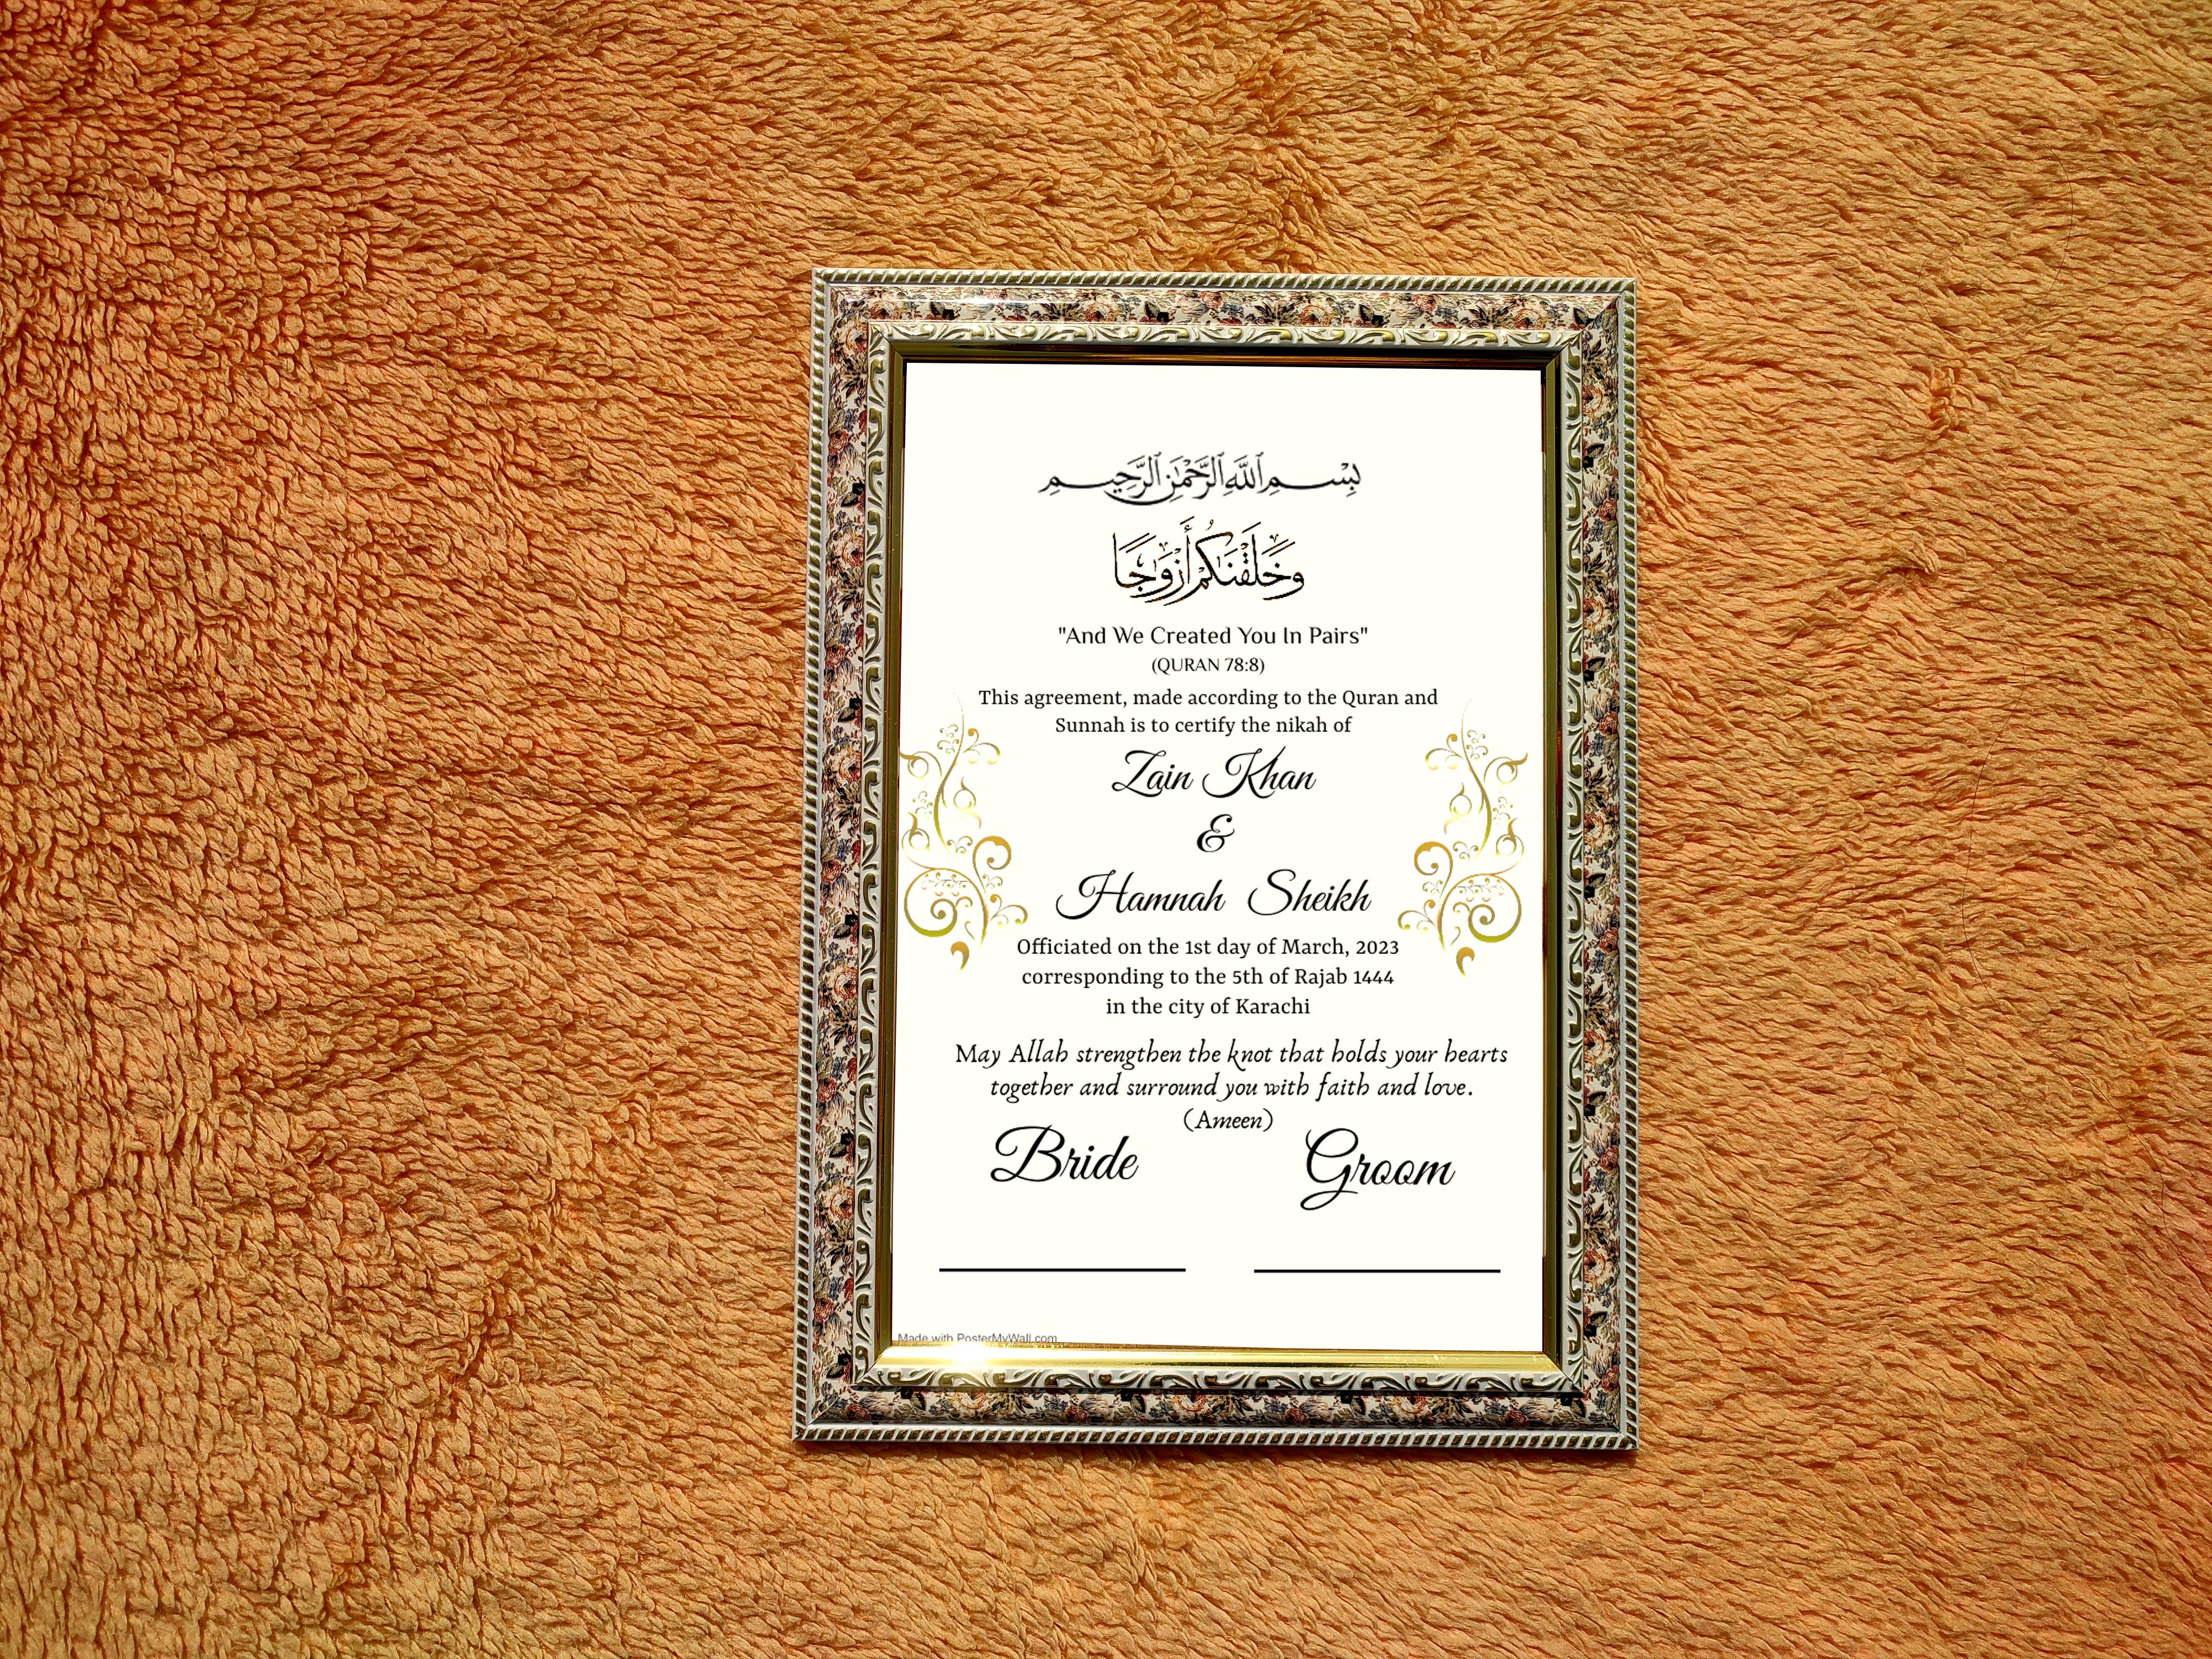 بِسْمِ اللَّهِ الرَّحْمَٰنِ الرَّحِيمِ
وَخَلَقْنَاكُمْ أَزْوَاجًا
"And We Created You In Pairs"
(QURAN 78:8)
This agreement, made according to the Quran and
Sunnah is to certify the nikah of
Zain Khan
&
Hamnah Sheikh
Officiated on the 1st day of March, 2023
corresponding to the 5th of Rajab 1444
in the city of Karachi
May Allah strengthen the knot that holds your hearts
together and surround you with faith and love.
(Ameen)
Bride Groom
Made with PosterMyWall.com